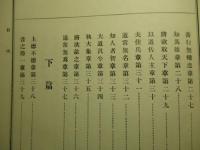 善行無轍迹章第二十七
知其雄章第二十八
將欲取天下章第二十九
以道佐人主章第三十
夫佳兵章第三十一
道常無名章第三十二
知人者智章第三十三
大道汎兮章第三十四
執大象章第三十五
將欲歙之章第三十六
道常無爲章第三十七
下篇
上德不德章第三十八
昔之得一章第三十九
目次